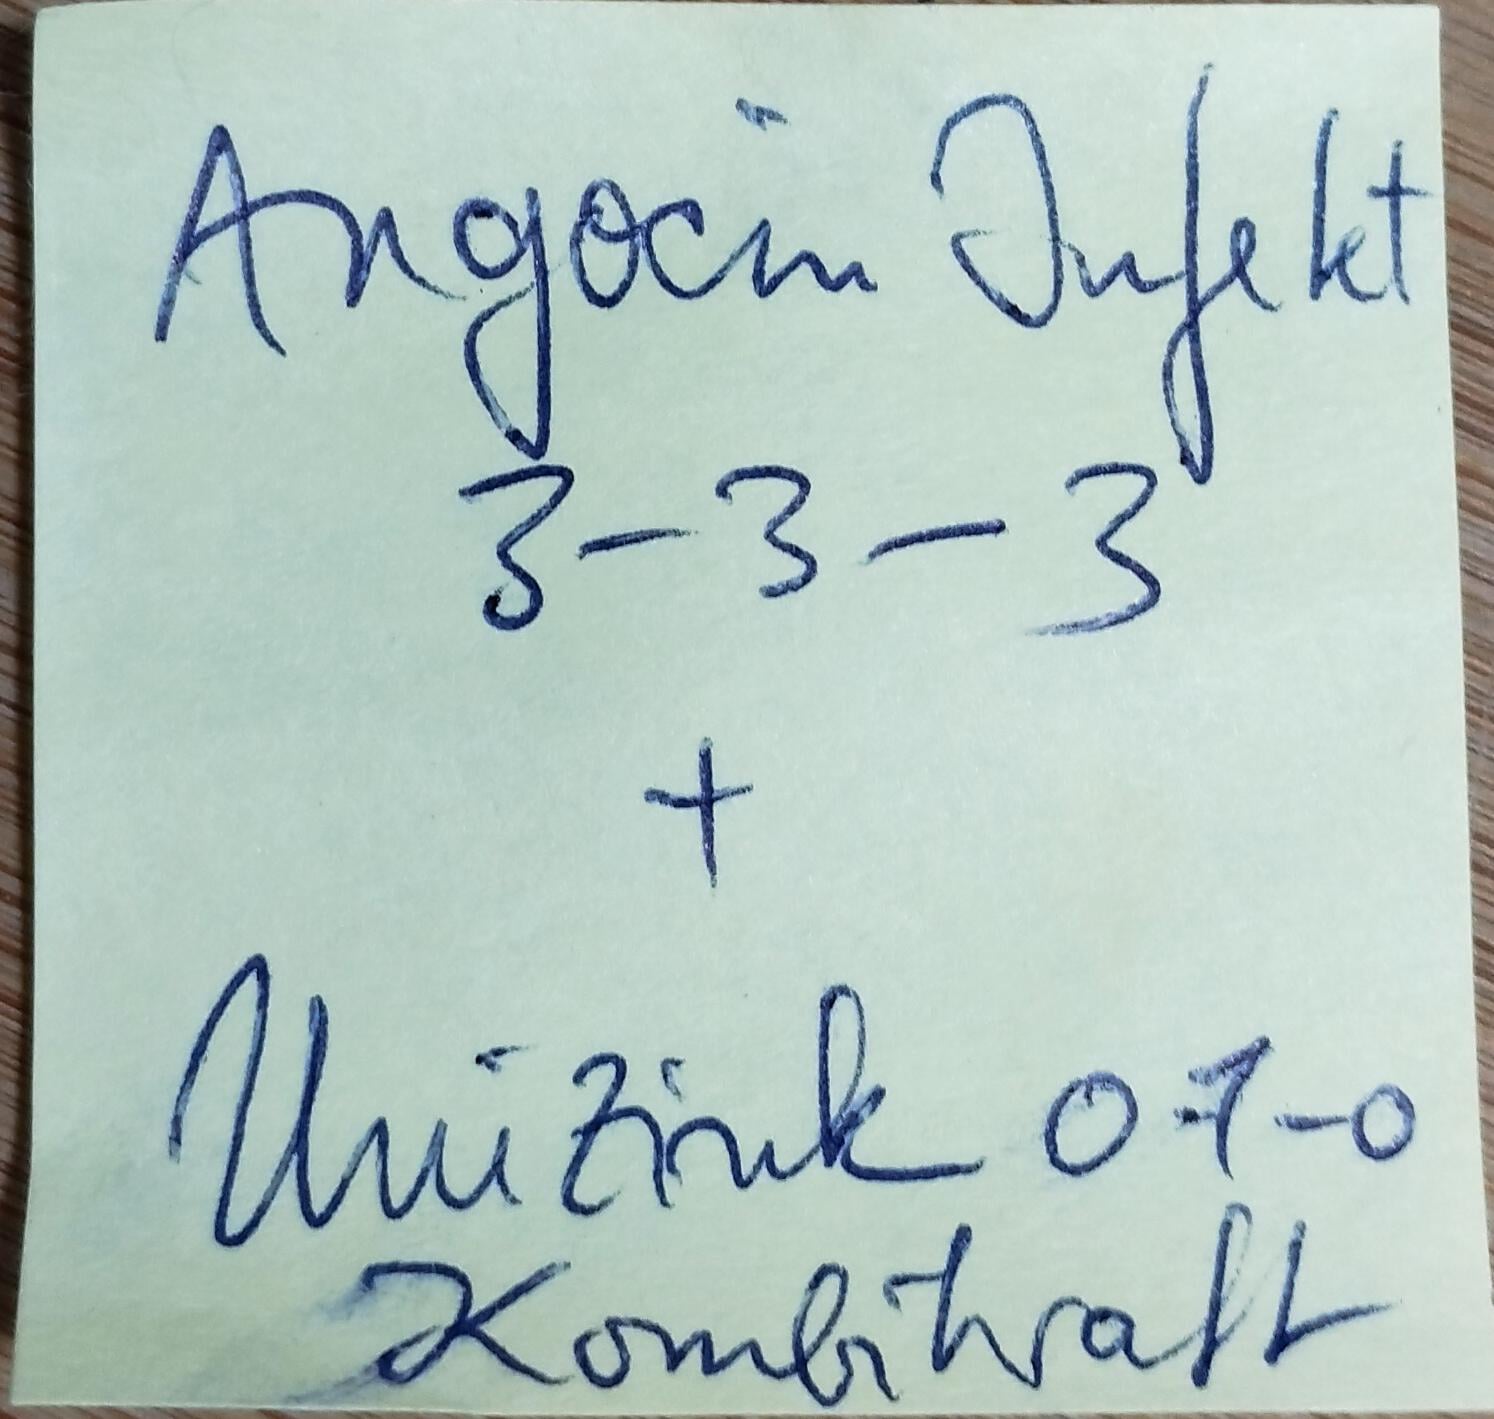 Angocin Infekt
3-3-3
+
Unizink 0-1-0
Kombikraft